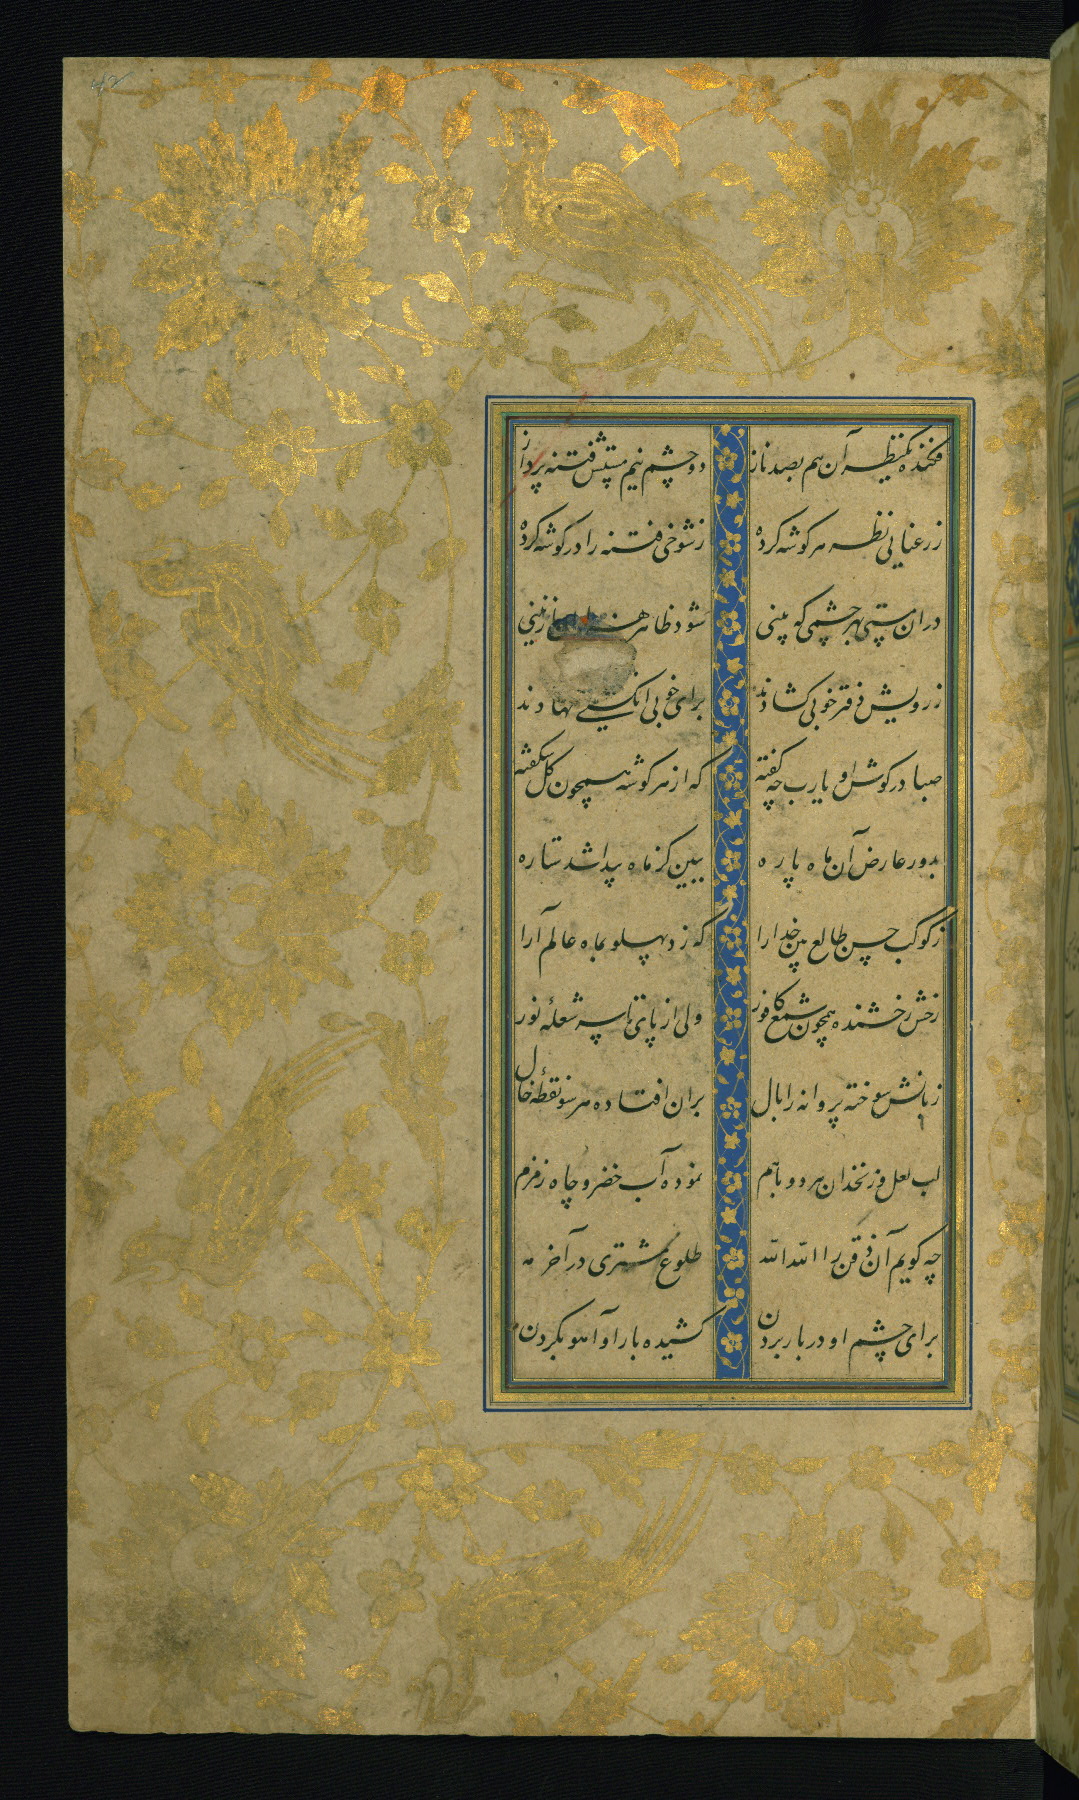 فکنده یکنظر آن هم بصد ناز
دو چشم نیم مستش فتنه پرداز
ز رعنایی نظر هر گوشه کرده
ز شوخی فتنه را در گوشه کرده
در ان مستی بهر چشمی که بینی
شود ظاهر نازنینی
ز رویش دفتر خوبی کشادند
برای خوبی انگشتی نهادند
صبا در گوش او یارب چه گفته
که از هر گوشه همچون گل شکفته
بدور عارض آن ماه پاره
ببین کز ماه پیدا شد ستاره
ز کوکب حسن طالع بین خدا را
که زد پهلو بماه عالم آرا
رخش رخشنده همچون شمع کافور
ولی از پای تا سر شعلهٔ نور
زبانش سوخته پروانه را بال
بران افتاده هر سو نقطهٔ خال
لب لعل و زنخدان هر دو باهم
نموده آب خضر و چاه زمزم
چه گویم آن ذقن را الله الله
طلوع مشتری در آخر مه
برای چشم او دربار بردن
کشیده بار او آهو بگردن